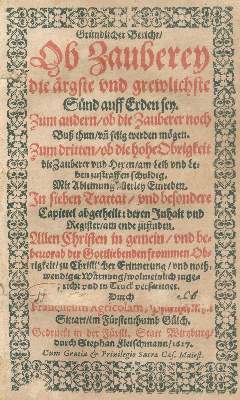 Gründlicher Bericht/
Ob Zauberey
die ärgste vnd grewlichste
Sünd auff Erden sey.
Zum andern/ob die Zauberer noch
Buß thun/vñ selig werden mögen.
Zum dritten/ob die hohe Obrigkeit
die Zauberer vnd Hexen/am Leib vnd Le-
ben zustraffen schuldig.
Mit Ablainung allerley Einreden.
In sieben Tractat/ vnd besondere
Capittel abgetheilt: deren Inhalt vnd
Register/am ende zufinden.
Allen Christen in gemein/ vnd be-
beuorab der Gottliebenden frommen Ob-
rigkeit/zu Christlicher Erinnerung/ vnd noth-
wendiger Warnung/wolmeinlich zuge-
richt vnd in Truck verfertiget.
Durch
Franciscum Agricolam,
Sittart/im Fürstenthumb Gülch.
Gedruckt in der Fürstl. Statt Wirtzburg/
durch Stephan Fleischmann/1627.
Cum Gratia & Privilegio Sacræ Cæs. Maiest.